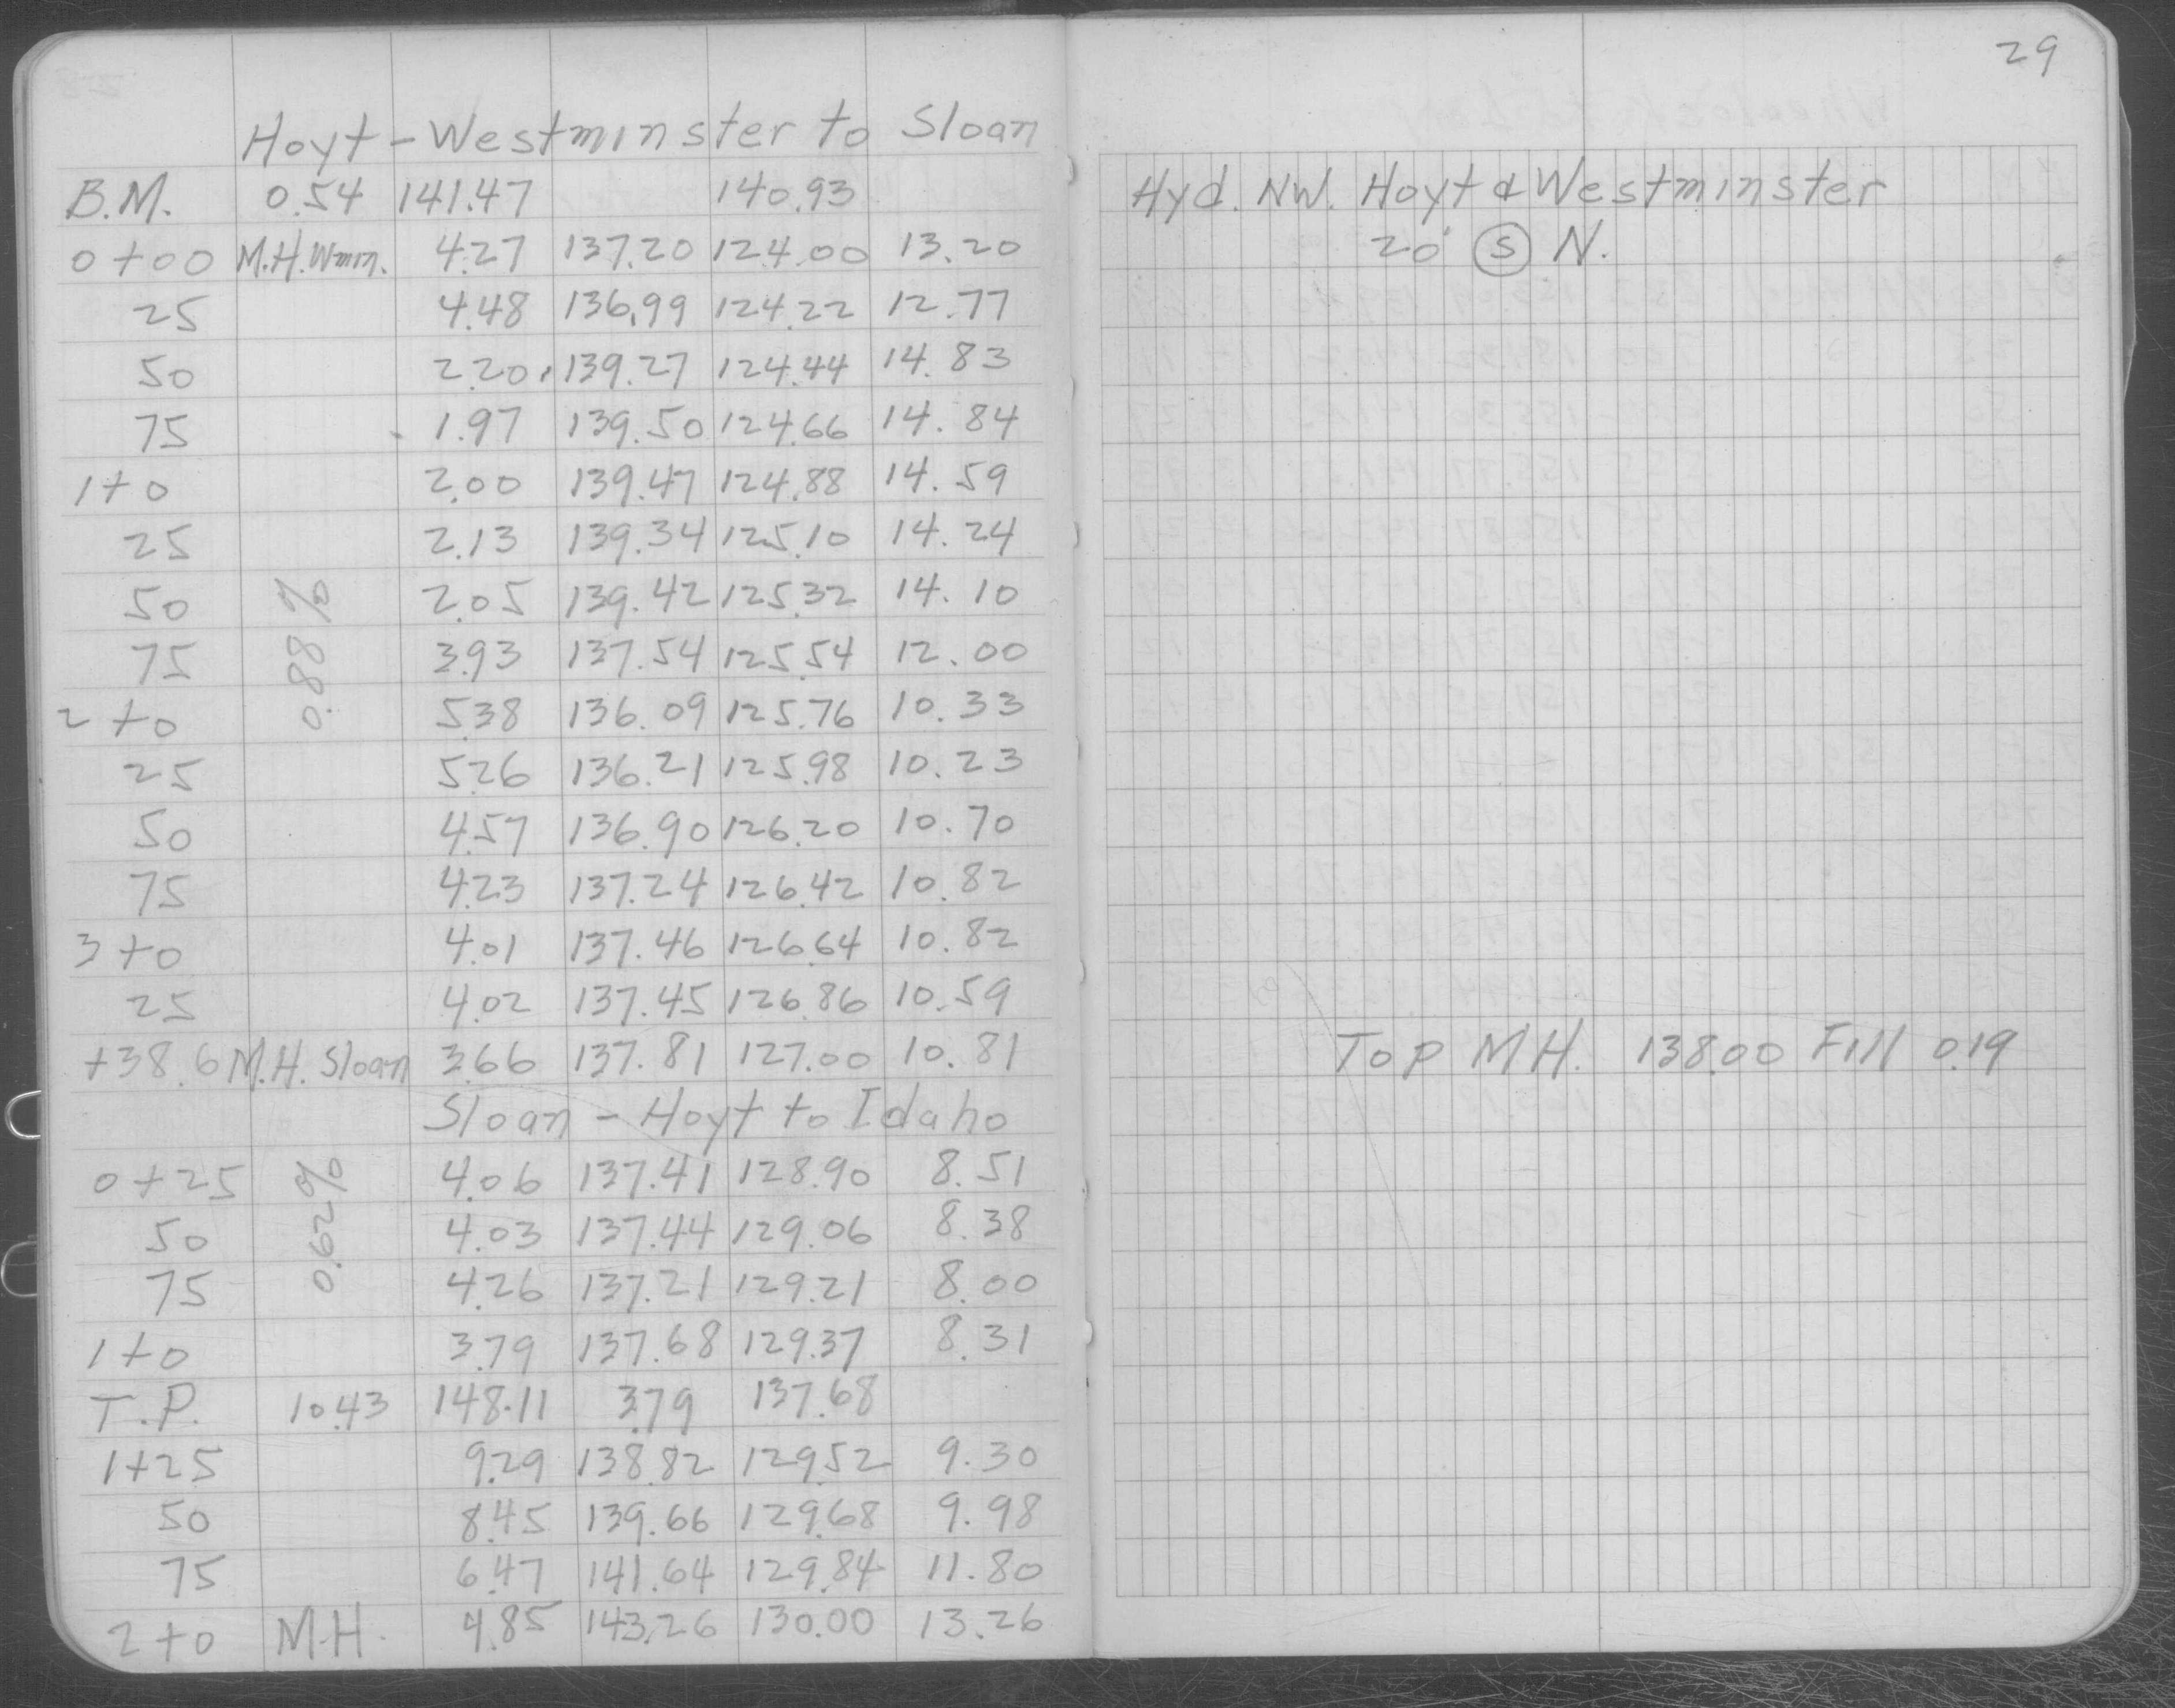 29
Hoyt - Westminster to Sloan
B.M. 0.54 141.47 140.93
0+00 M.H. Wmin. 4.27 137.20 124.00 13.20
25 4.48 136.99 124.22 12.77
50 2.20 139.27 124.44 14.83
75 1.97 139.50 124.66 14.84
1+0 2.00 139.47 124.88 14.59
25 2.13 139.34 125.10 14.24
50 2.05 139.42 125.32 14.10
75 3.93 137.54 125.54 12.00
0.88%
2+0 5.38 136.09 125.76 10.33
25 5.26 136.21 125.98 10.23
50 4.57 136.90 126.20 10.70
75 4.23 137.24 126.42 10.82
3+0 4.01 137.46 126.64 10.82
25 4.02 137.45 126.86 10.59
+38.6 M.H. Sloan 3.66 137.81 127.00 10.81
Sloan - Hoyt to Idaho
0+25 4.06 137.41 128.90 8.51
50 4.03 137.44 129.06 8.38
0.62%
75 4.26 137.21 129.21 8.00
1+0 3.79 137.68 129.37 8.31
T.P. 10.43 148.11 3.79 137.68
1+25 9.29 138.82 129.52 9.30
50 8.45 139.66 129.68 9.98
75 6.47 141.64 129.84 11.80
2+0 M.H. 4.85 143.26 130.00 13.26
Hyd. NW. Hoyt & Westminster
20' S N.
Top M.H. 138.00 Fill 0.19